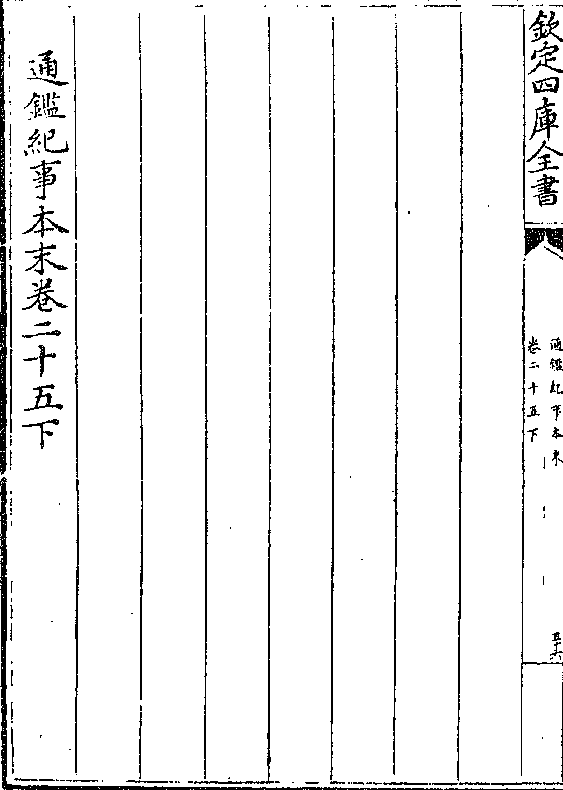 欽定四庫全書
通鑑紀事本末
卷二十五下
五十六
通鑑紀事本末卷二十五下